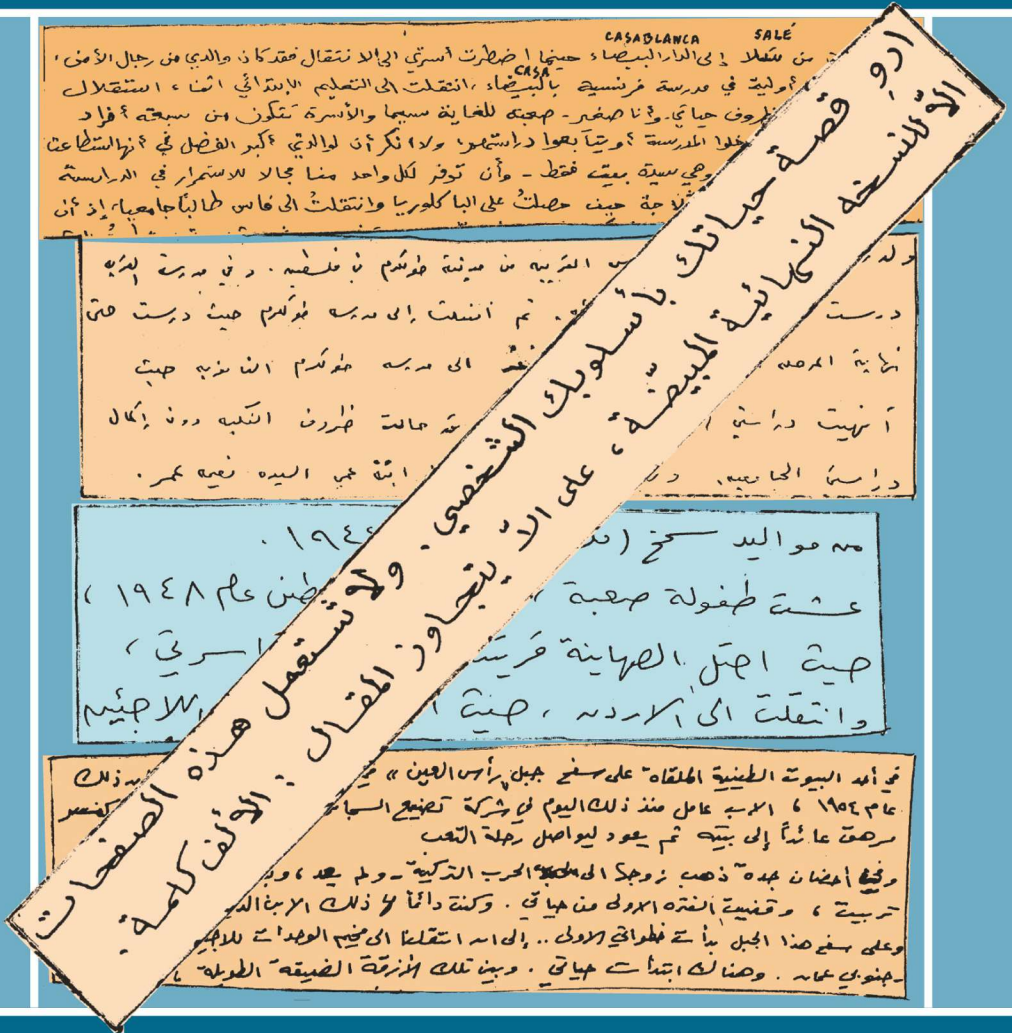 SALE
CASABLANCA
من سلا إلى الدار البيضاء حينما اضطرت أسرتي إلى الانتقال فقد كان والدي من رجال الأمن،
أولية في مدرسة فرنسية بالبيضاء، انتقلت إلى التعليم الابتدائي أثناء استقلال
CASA
ظروف حياتي - وأنا صغير - صعبة للغاية سيما والأسرة تتكون من سبعة أفراد
المدرسة أو يتابعوا دراستهم، ولا أنكر أن لوالدتي أكبر الفضل في أنها استطاعت
وهي سيدة بيت فقط - وأن توفر لكل واحد منا مجالا للاستمرار في الدراسة
حيث حصلت على الباكلوريا وانتقلت إلى فاس طالبا جامعيا، إذ أن
القريبه من مدينة طولكرم في فلسطين. و في مدرسة القريه
درست ثم انتقلت إلى مدرسه طولكرم حيث درست حتى
نهاية المرحله الى مدرسه طولكرم الثانويه حيث
أنهيت دراستي حالت ظروف النكبه دون إكمال
دراستي الجامعيه. ابنة عمي السيده نعيمه عمر.
من مواليد ١٩٤٤.
عشت طفولة صعبة عام ١٩٤٨،
حيث احتل الصهاينة أسرتي،
وانتقلت الى الاردن، حيث اللاجئين
في أحد البيوت الطينية الملقاة على سفح جبل "رأس العين" ذلك
عام ١٩٥٤، الاب عامل منذ ذلك اليوم في شركة تصنيع
مرهق عائداً إلى بيته ثم يعود ليواصل رحلة التعب
أحضان جدة ذهب زوجها الى الحرب التركية - ولم يعد،
تربيت، وقضيت الفتره الاولى من حياتي. وكنت دائماً ذلك الابن
وعلى سفح هذا الجبل بدأت خطواتي الاولى.. إلى ان انتقلنا الى مخيم الوحدات
جنوبي عمان. وهنالك ابتدأت حياتي. وبين تلك الأزقة الضيقة الطويلة
اروِ قصة حياتك بأسلوبك الشخصي. ولا تستعمل هذه الصفحات
إلاّ للنسخة النهائية المبيضّة، على الاّ يتجاوز المقال: الألف كلمة.